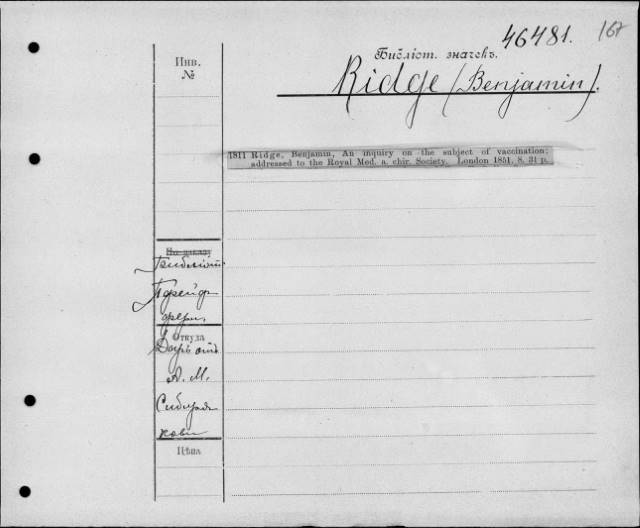 46481. 167
Инв.
№
Библіот. значекъ.
Ridge (Benjamin).
1811 Ridge, Benjamin, An inquiry on the subject of vaccination;
addressed to the Royal Med. a. chir. Society. London 1851. 8. 31 p.
По шкапу
Библіот.
Пфейф-
фера.
Откуда
Даръ отъ
А. М.
Сибиря-
кова
Цѣна